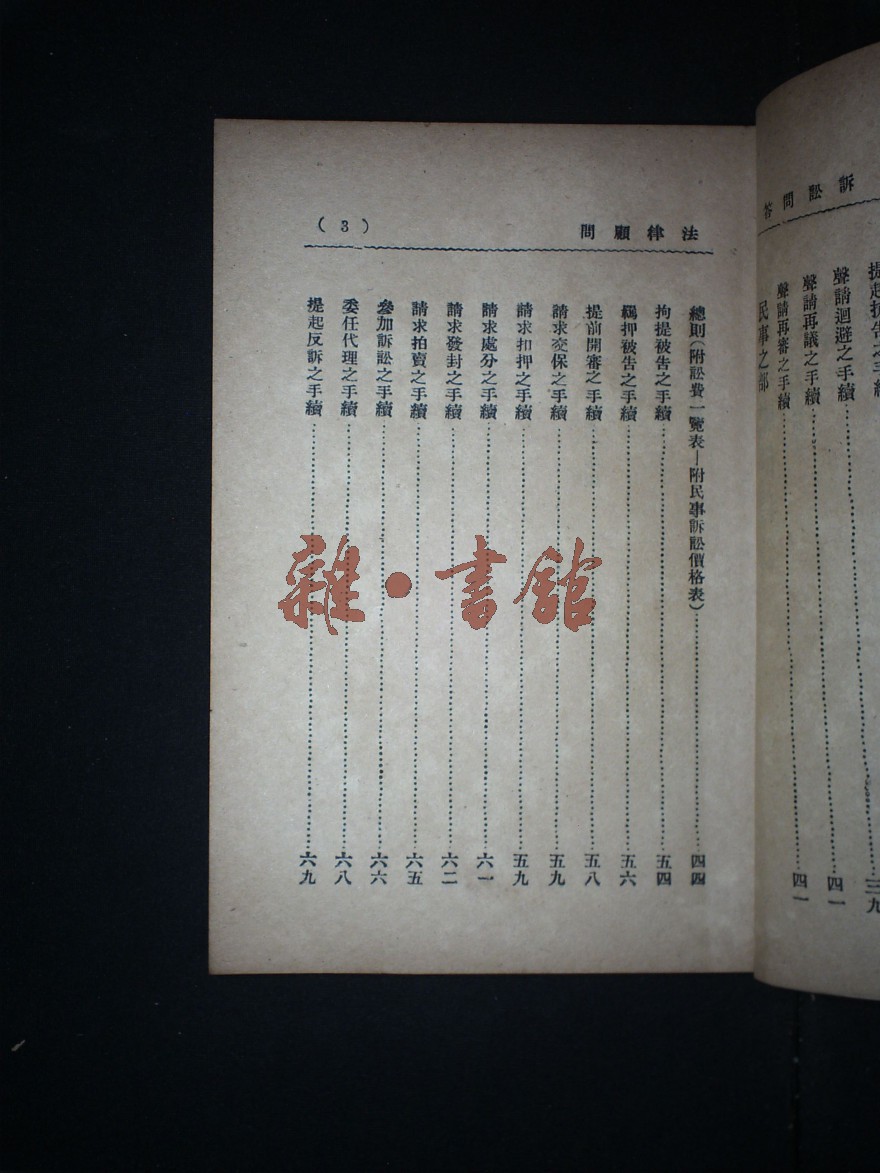 訴訟問答
提起抗告之手續……三九
聲請迴避之手續……四一
聲請再議之手續
聲請再審之手續……四一
民事之部
法律顧問
(3)
總則(附訟費一覽表—附民事訴訟價格表)……四四
拘提被告之手續……五四
羈押被告之手續……五六
提前開審之手續……五八
請求交保之手續……五九
請求扣押之手續……五九
請求處分之手續……六一
請求發封之手續……六二
請求拍賣之手續……六五
參加訴訟之手續……六六
委任代理之手續……六八
提起反訴之手續……六九
雜·書館